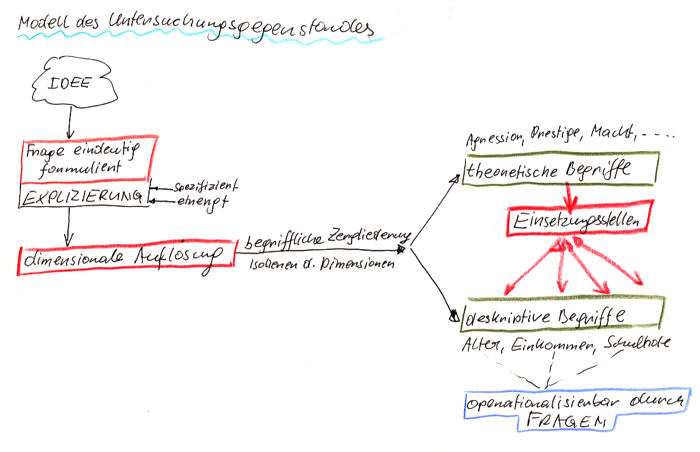 Modell des Untersuchungsgegenstandes
IDEE
Frage eindeutig
formuliert
EXPLIZIERUNG
spezifiziert
einengt
dimensionale Auflösung
begriffliche Zergliederung
Isolieren d. Dimensionen
Aggression, Prestige, Macht, ....
theoretische Begriffe
Einsetzungsstellen
deskriptive Begriffe
Alter, Einkommen, Schulbild
operationalisierbar durch
FRAGEN